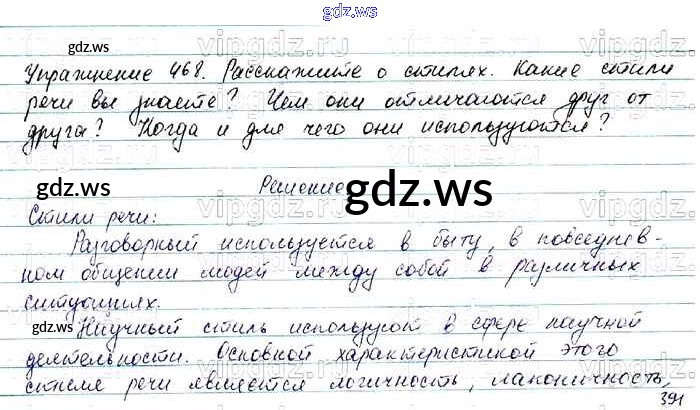 gdz.ws
gdz.ws
Упражнение 468. Расскажите о стилях. Какие стили
речи вы знаете? Чем они отличаются друг от
друга? Когда и для чего они используются?
Решение
gdz.ws
Стили речи:
Разговорный используется в быту, в повседнев-
ном общении людей между собой в различных
ситуациях.
gdz.ws
Научный стиль используют в сфере научной
деятельности. Основной характеристикой этого
стиля речи является логичность, лаконичность,
391